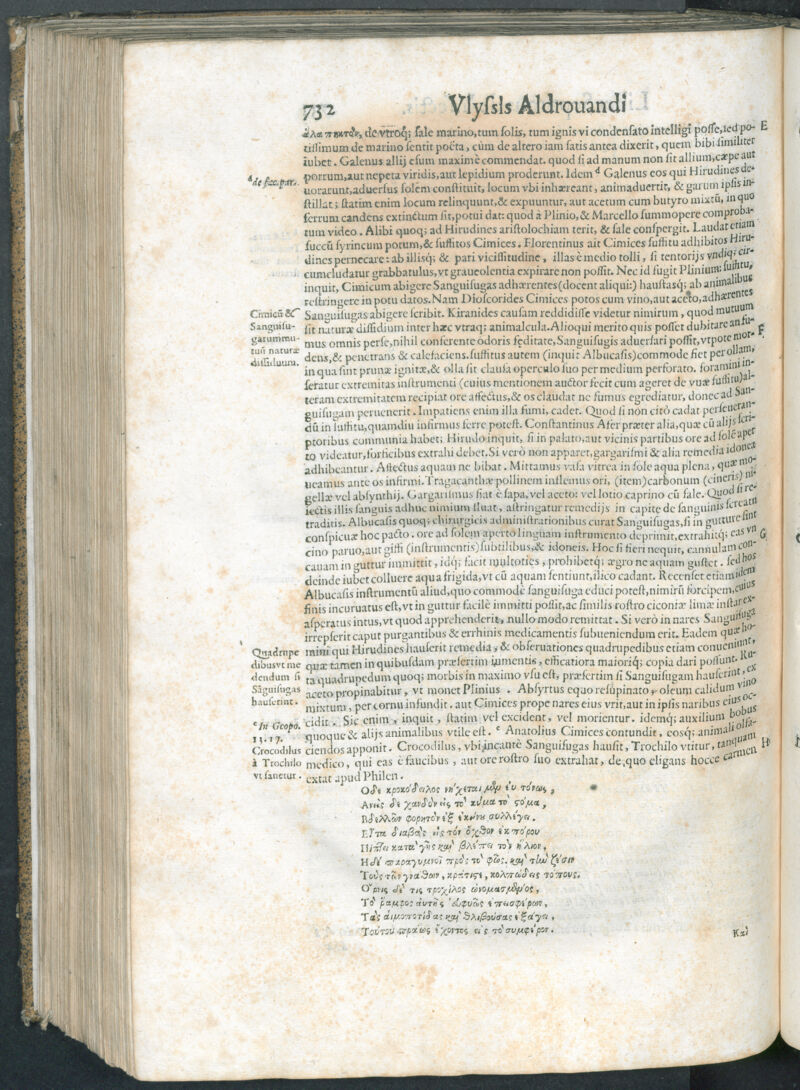 732 Vlyſsis Aldrouandi
de vtroq; ſale marino, tum ſolis, tum ignis vi condenſato intelligi poſſe, ſed po- E
tiſſimum de marino ſentit poëta, cùm de altero iam ſatis antea dixerit, quem bibi ſimiliter
iubet. Galenus allij eſum maximè commendat. quod ſi ad manum non ſit allium, cæpe aut
porrum, aut nepeta viridis, aut lepidium proderunt. Idem d Galenus eos qui Hirudines de-
d de fac. par.
uorarunt, aduerſus ſolem conſtituit, locum vbi inhæreant, animaduertit, & garum ipſis in-
ſtillat; ſtatim enim locum relinquunt, & expuuntur, aut acetum cum butyro mixtū, in quo
ferrum candens extinctum ſit, potui dat: quod à Plinio, & Marcello ſummopere comproba-
tum video. Alibi quoq; ad Hirudines ariſtolochiam terit, & ſale conſpergit. Laudat etiam
ſuccū ſyrincum potum, & ſuffitos Cimices. Florentinus ait Cimices ſuffitu adhibitos Hiru-
dines pernecare: ab illisq; & pari viciſſitudine, illas è medio tolli, ſi tentorijs vndiq; cir-
cumcludatur grabbatulus, vt graueolentia expirare non poſſit. Nec id fugit Plinium: ſuffitu,
inquit, Cimicum abigere Sanguiſugas adhærentes (docent aliqui:) hauſtasq; ab animalibus
reſtringere in potu datos. Nam Dioſcorides Cimices potos cum vino, aut aceto, adhærentes
Cimicū &
Sanguiſugas abigere ſcribit. Kiranides cauſam reddidiſſe videtur nimirum, quod mutuum
Sanguiſu-
ſit naturæ diſſidium inter hæc vtraq; animalcula. Alioqui merito quis poſſet dubitare an fu- F
garummu-
mus omnis perſe, nihil conferente odoris fęditate, Sanguiſugis aduerſari poſſit, vtpote mor-
tuū naturæ
dens, & penetrans & calefaciens. ſuffitus autem (inquit Albucaſis) commode fiet per ollam,
diſſiduum.
in qua ſint prunæ ignitæ, & olla ſit clauſa operculo ſuo per medium perforato. foramini in-
feratur extremitas inſtrumenti (cuius mentionem auctor fecit cum ageret de vuæ ſuffitu) al-
teram extremitatem recipiat ore affectus, & os claudat ne fumus egrediatur, donec ad San-
guiſugam peruenerit. Impatiens enim illa fumi, cadet. Quod ſi non citò cadat perſeueran-
dū in ſuffitu, quamdiu infirmus ferre poteſt. Conſtantinus Afer præter alia, quæ cū alijs ſcri-
ptoribus communia habet; Hirudo inquit, ſi in palato, aut vicinis partibus ore ad ſolē aper
to videatur, forficibus extrahi debet. Si verò non apparet, gargariſmi & alia remedia idonea
adhibeantur. Affectus aquam ne bibat. Mittamus vaſa vitrea in ſole aqua plena, quæ mo-
ueamus ante os infirmi. Tragacanthæ pollinem inſlemus ori, (item) carbonum (cineris) ni-
gellæ vel abſynthij. Gargariſmus fiat è ſapa, vel aceto: vel lotio caprino cū ſale. Quod ſi re-
iectis illis ſanguis adhuc nimium fluat, aſtringatur remedijs in capite de ſanguinis ſcreatu
traditis. Albucaſis quoq; chirurgicis adminiſtrationibus curat Sanguiſugas, ſi in gutture ſint
conſpicuæ hoc pacto. ore ad ſolem aperto linguam inſtrumento deprimit, extrahitq; eas vn G
cino paruo, aut giffi (inſtrumentis) ſubtilibus, & idoneis. Hoc ſi fieri nequit, cannulam con-
cauam in guttur immittit, idq; facit multoties, prohibetq; ægro ne aquam guſtet. ſed hos
deinde iubet colluere aqua frigida, vt cū aquam ſentiunt, ilico cadant. Recenſet etiam idem
Albucaſis inſtrumentū aliud, quo commodè ſanguiſuga educi poteſt, nimirū forcipem, cuius
finis incuruatus eſt, vt in guttur facilè immitti poſſit, ac ſimilis roſtro ciconiæ limæ inſtar ex-
aſperatus intus, vt quod apprehenderit, nullo modo remittat. Si verò in nares Sanguiſuga
irrepſerit caput purgantibus & errhinis medicamentis ſubueniendum erit. Eadem quæ ho-
Quadrupe
mini qui Hirudines hauſerit remedia, & obſeruationes quadrupedibus etiam conueniunt,
dibusvt me
quæ tamen in quibuſdam præſertim iumentis, efficatiora maioriq; copia dari poſſunt. Ru-
dendum ſi
ta quadrupedum quoq; morbis in maximo vſu eſt, præſertim ſi Sanguiſugam hauſerint, ex
Sāguiſugas
aceto propinabitur, vt monet Plinius. Abſyrtus equo reſupinato, oleum calidum vino
hauſerint.
mixtum, per cornu infundit. aut Cimices prope nares eius vrit, aut in ipſis naribus eius oc-
e In Geopo. 13. 17.
cidit. Sic enim, inquit, ſtatim vel excident, vel morientur. idemq; auxilium bobus
quoque & alijs animalibus vtile eſt. e Anatolius Cimices contundit, eosq; animali olfa-
Crocodilus
ciendos apponit. Crocodilus, vbi incautè Sanguiſugas hauſit, Trochilo vtitur, tanquam H
à Trochilo
medico, qui eas è faucibus, aut ore roſtro ſuo extrahat, de quo eligans hocce carmen
vt ſanetur.
extat apud Philen.
Ὁ δὲ κροκόδειλος νήχεται μὲν ἐν τόνῳ,
Ἀνεὶς δὲ χανδὸν εἰς τὸ κῦμα τὸ στόμα,
Βδελλῶν φορητὸν ἐξ ἐκείνου συλλέγει.
Εἶτα διαβὰς εἰς τὸν ὄχθον ἐκ πόρου
Πίπτει κατὰ γῆς καὶ βλέπει τὸν ἥλιον,
Ὄρνις δέ τις τροχίλος ὠνομασμένος,
Τὸ ῥάμφος αὐτῆς εὐφυῶς ἐπεισφέρων,
Τὰς αἱμοποτίδας καὶ θλιβούσας ἐξάγει,
Τούτου πράως ἔχοντος εἰς τὸ συμφέρον.
Καὶ